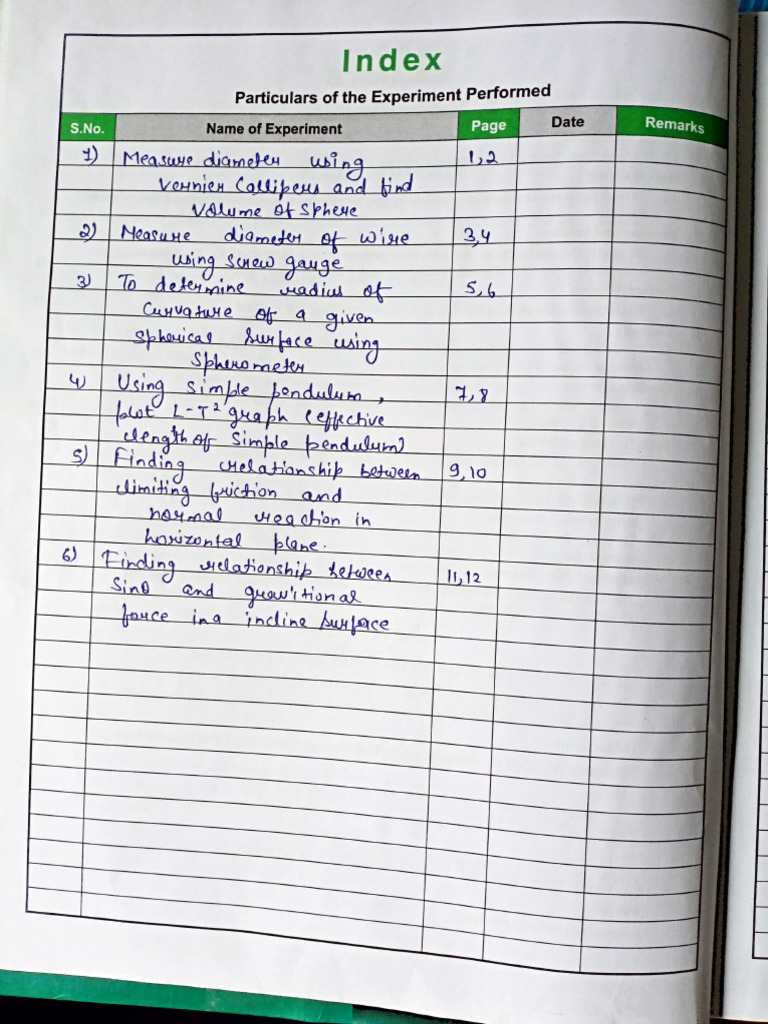 Index
Particulars of the Experiment Performed
S.No. Name of Experiment Page Date Remarks
1) Measure diameter using 1,2
Vernier Callipers and find
Volume of Sphere
2) Measure diameter of wire 3,4
using screw gauge
3) To determine radius of 5,6
Curvature of a given
Spherical Surface using
Spherometer
4) Using simple pendulum, 7,8
plot L-T² graph (effective
length of Simple pendulum)
5) Finding relationship between 9,10
limiting friction and
normal reaction in
horizontal plane.
6) Finding relationship between 11,12
Sinθ and gravitional
force in a incline Surface